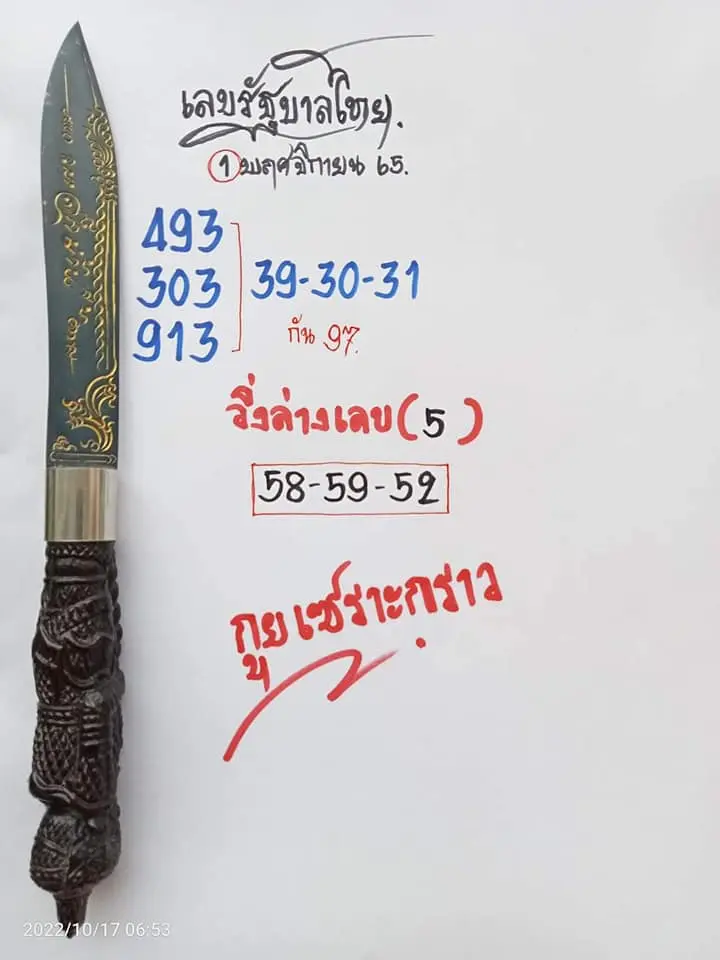 เลขรัฐบาลไทย.
1 พฤศจิกายน 65.
493
303 39-30-31
913
กัน 97.
วิ่งล่างเลข (5)
58-59-52
กูยเซราะกราว
2022/10/17 06:53